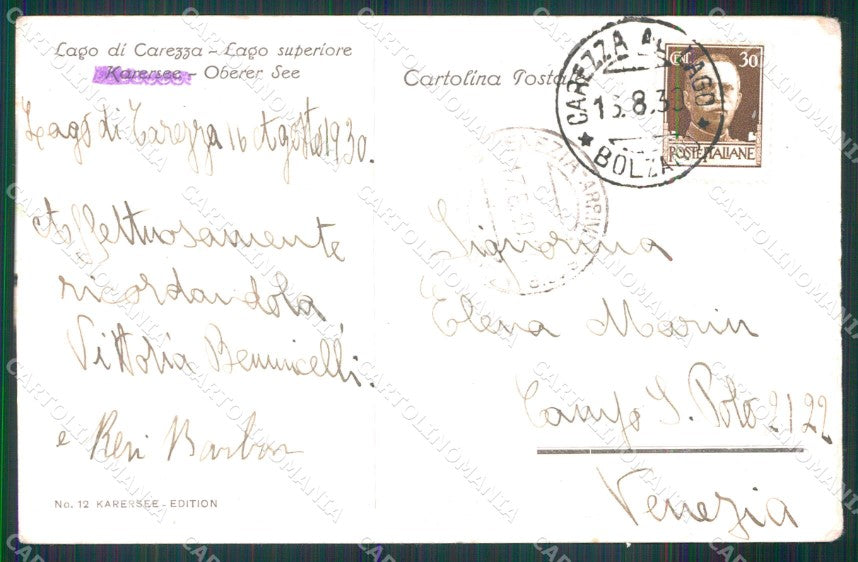 Lago di Carezza - Lago superiore
Karersee - Oberer See
Cartolina Postale
CAREZZA AL LAGO
16.8.30
BOLZANO
CENT. 30
POSTE ITALIANE
VENEZIA ARRIVI
Lago di Carezza 16 Agosto 1930.
Affettuosamente
ricordandola
Vittoria Bennicelli.
e Reri Barbon
Signorina
Elena Marin
Campo S. Polo 2122
Venezia
No. 12 KARERSEE - EDITION
CARTOLINOMANIA